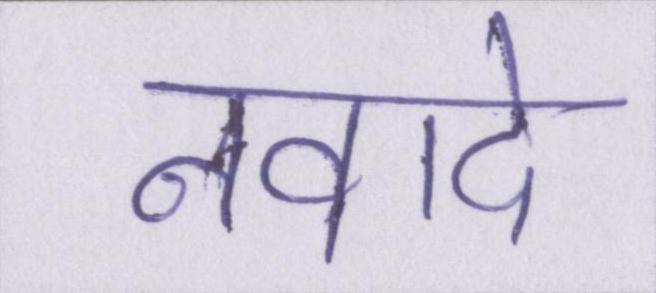 नवादे